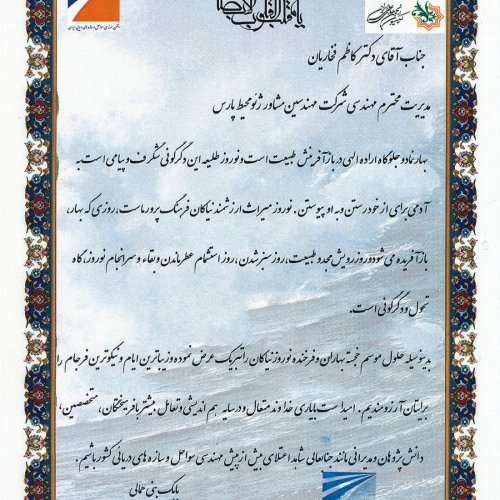 یا مقلب القلوب و الابصار
جناب آقای دکتر کاظم فخاریان
مدیریت محترم مهندسی شرکت مهندسین مشاور ژئومحیط پارس
بهار نماد و جلوگاه اراده الهی در بازآفرینش طبیعت است و نوروز طلیعه این دگرگونی شگرف و پیامی است به
آدمی برای از خود رستن و به او پیوستن. نوروز میراث ارزشمند نیاکان فرهنگ پرور ماست، روزی که بهار،
بازآفریده می شود و روز رویش مجدد طبیعت، روز سبز شدن، روز استشمام عطر ماندن و بقاء و سرانجام نوروز، گاه
تحول و دگرگونی است.
بدینوسیله حلول موسم خجسته بهاران و فرخنده نوروز نیاکان را تبریک عرض نموده و زیباترین ایام و نیکوترین فرجام را
برایتان آرزومندیم. امید است با یاری خداوند متعال و در سایه هم اندیشی و تعامل بیشتر با فرهیختگان، متخصصین،
دانش پژوهان و مدیرانی مانند جنابعالی شاهد اعتلای بیش از پیش مهندسی سواحل و سازه های دریائی کشور باشیم.
بابک بنی جمالی